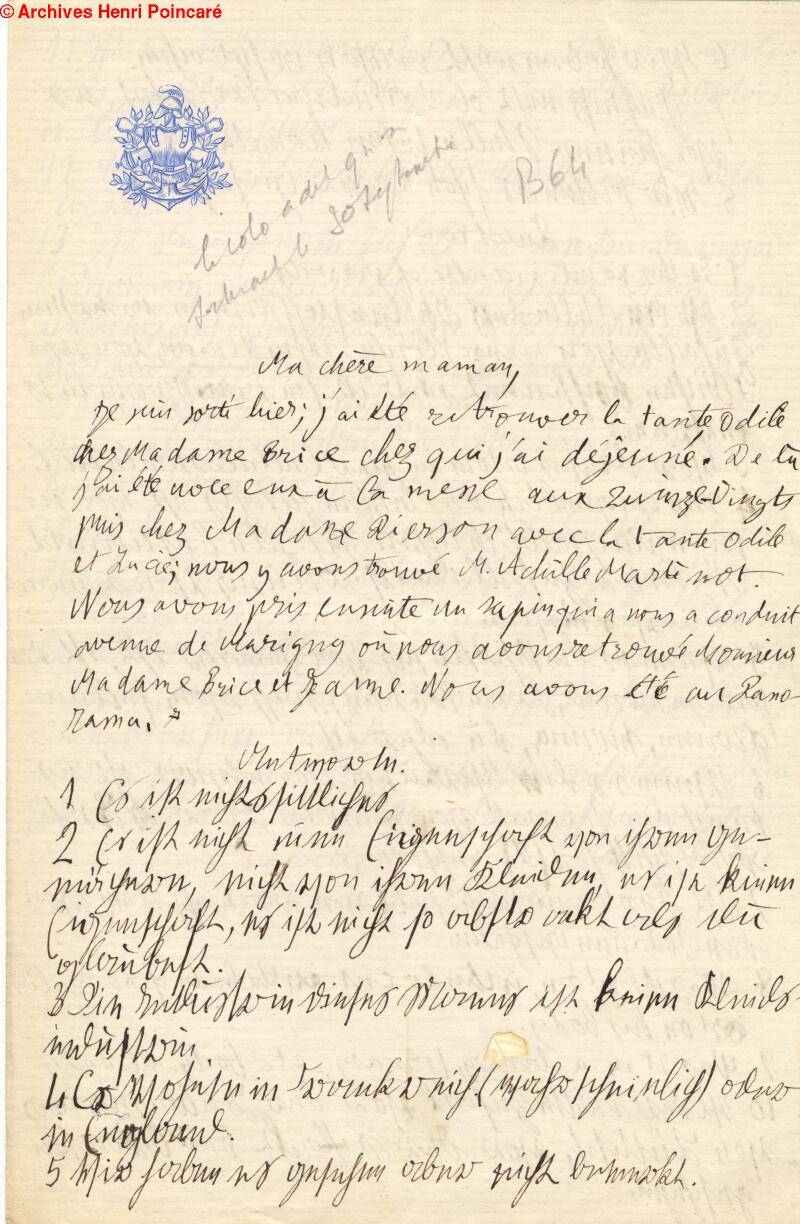 © Archives Henri Poincaré
B64
Ma chère maman,
Je suis sorti hier; j'ai été retrouver la tante Odile
chez Madame Brice chez qui j'ai déjeuné. De là
j'ai été avec eux à la messe aux Quinze-Vingts
puis chez Madame Pierson avec la tante Odile
et Lucie; nous y avons trouvé M. Achille Martinot.
Nous avons pris ensuite un sapin qui a nous a conduit
avenue de Marigny où nous avons retrouvé Monsieur
Madame Brice et Jeanne. Nous avons été au Pano-
rama.
Antworten.
1 Es ist nichts sittliches
2 Es ist nicht eine Eigenschaft von ihren Ge-
nicht von ihren Kleidern, es ist keine
Eigenschaft, es ist nicht so abstrakt als du
glaubest.
3 Die Industrie dieses Mannes ist keine Kleids-
industrie
4 Er wohnte in Frankreich (wahrscheinlich) oder
in England.
5 Wir haben es gesehen aber nicht bemerkt.